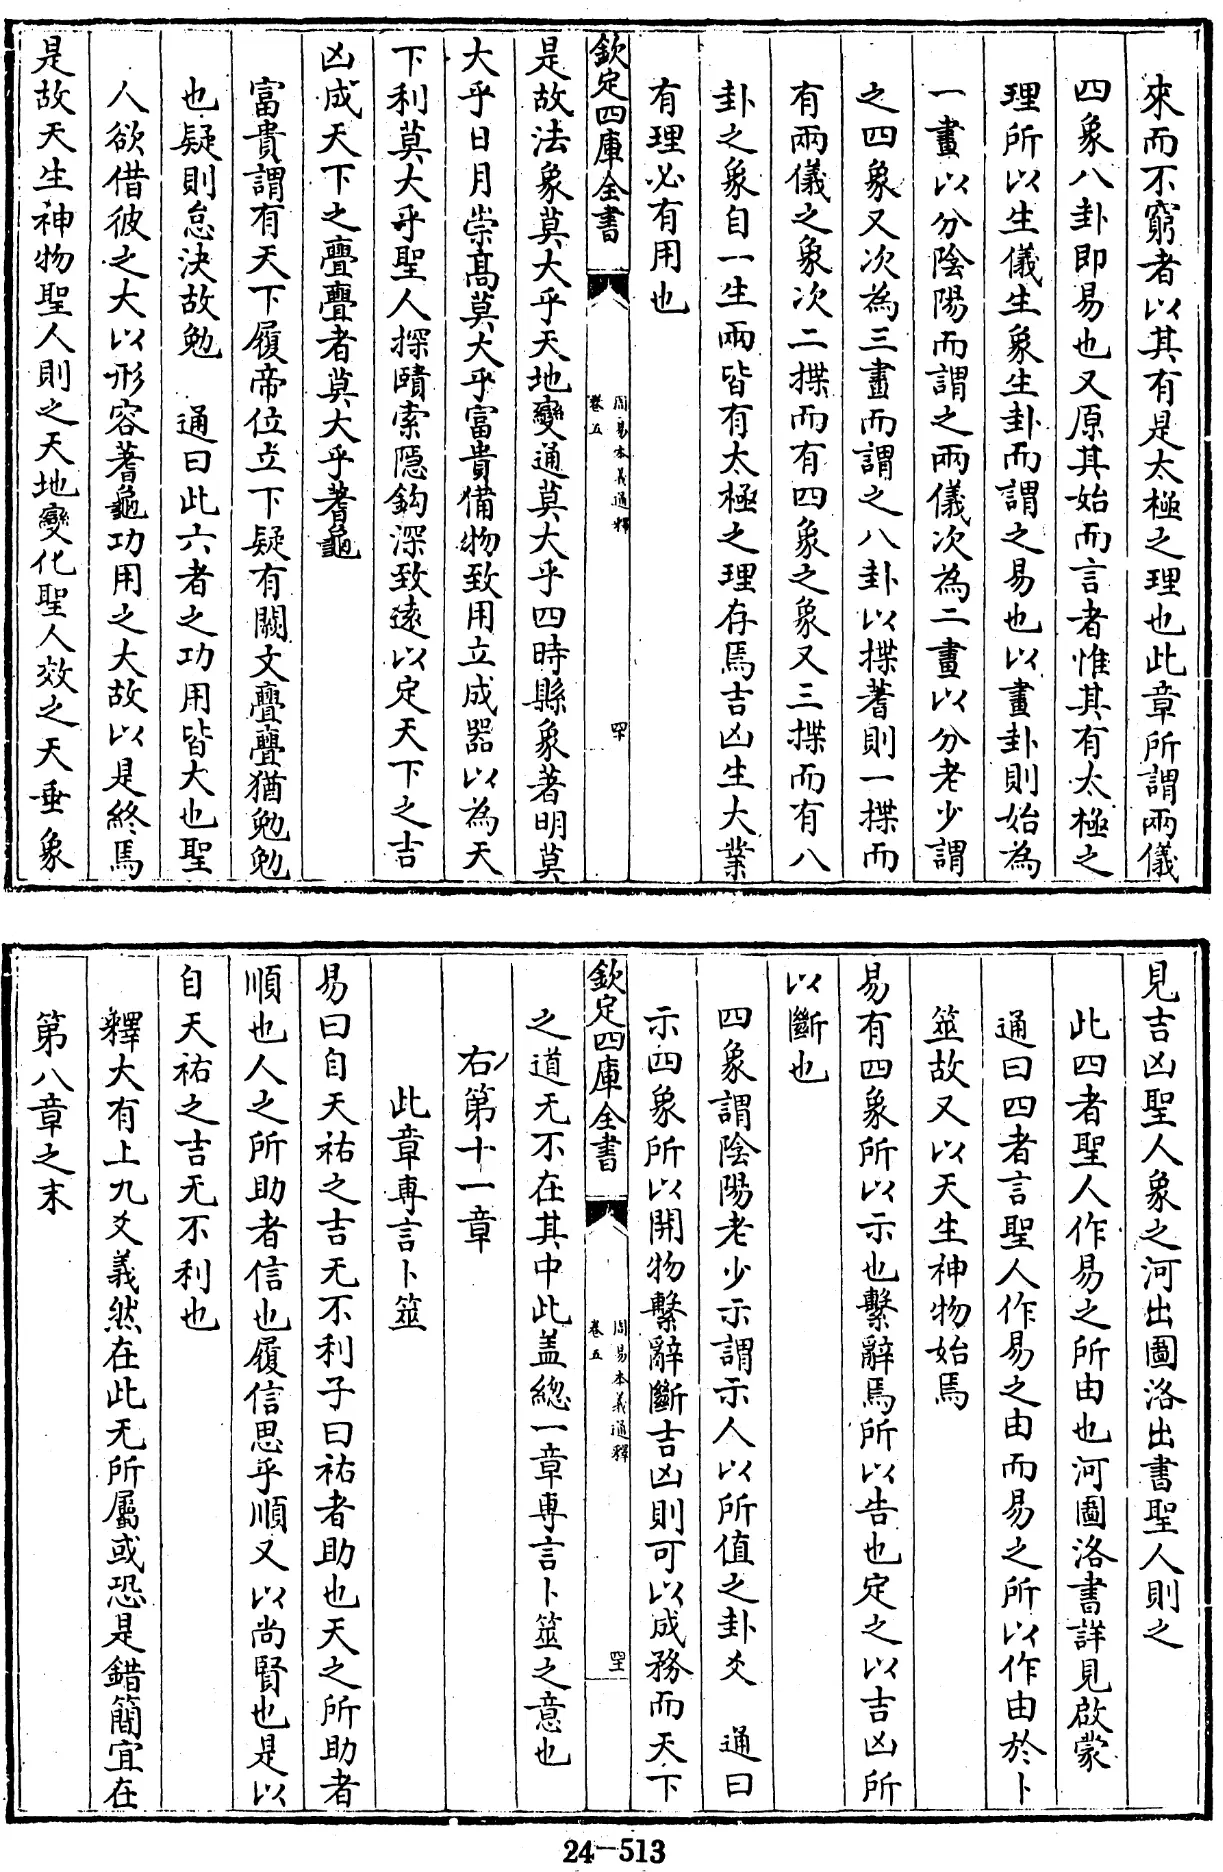 來而不窮者以其有是太極之理也此章所謂兩儀
四象八卦即易也又原其始而言者惟其有太極之
理所以生儀生象生卦而謂之易也以畫卦則始為
一畫以分陰陽而謂之兩儀次為二畫以分老少謂
之四象又次為三畫而謂之八卦以揲蓍則一揲而
有兩儀之象次二揲而有四象之象又三揲而有八
卦之象自一生兩皆有太極之理存焉吉凶生大業
有理必有用也
欽定四庫全書
周易本義通釋
卷五
罕
是故法象莫大乎天地變通莫大乎四時縣象著明莫
大乎日月崇高莫大乎富貴備物致用立成器以為天
下利莫大乎聖人探賾索隱鈎深致遠以定天下之吉
凶成天下之亹亹者莫大乎蓍龜
富貴謂有天下履帝位立下疑有闕文亹亹猶勉勉
也疑則怠決故勉 通曰此六者之功用皆大也聖
人欲借彼之大以形容蓍龜功用之大故以是終焉
是故天生神物聖人則之天地變化聖人效之天垂象
見吉凶聖人象之河出圖洛出書聖人則之
此四者聖人作易之所由也河圖洛書詳見啟蒙
通曰四者言聖人作易之由而易之所以作由於卜
筮故又以天生神物始焉
易有四象所以示也繫辭焉所以告也定之以吉凶所
以斷也
四象謂陰陽老少示謂示人以所值之卦爻 通曰
示四象所以開物繫辭斷吉凶則可以成務而天下
欽定四庫全書
周易本義通釋
卷五
之道无不在其中此盖總一章專言卜筮之意也
右第十一章
此章專言卜筮
易曰自天祐之吉无不利子曰祐者助也天之所助者
順也人之所助者信也履信思乎順又以尚賢也是以
自天祐之吉无不利也
釋大有上九爻義然在此无所屬或恐是錯簡宜在
第八章之末
24-513